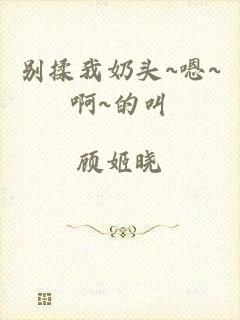 别揉我奶头~嗯~
啊~的叫
顾姬晓